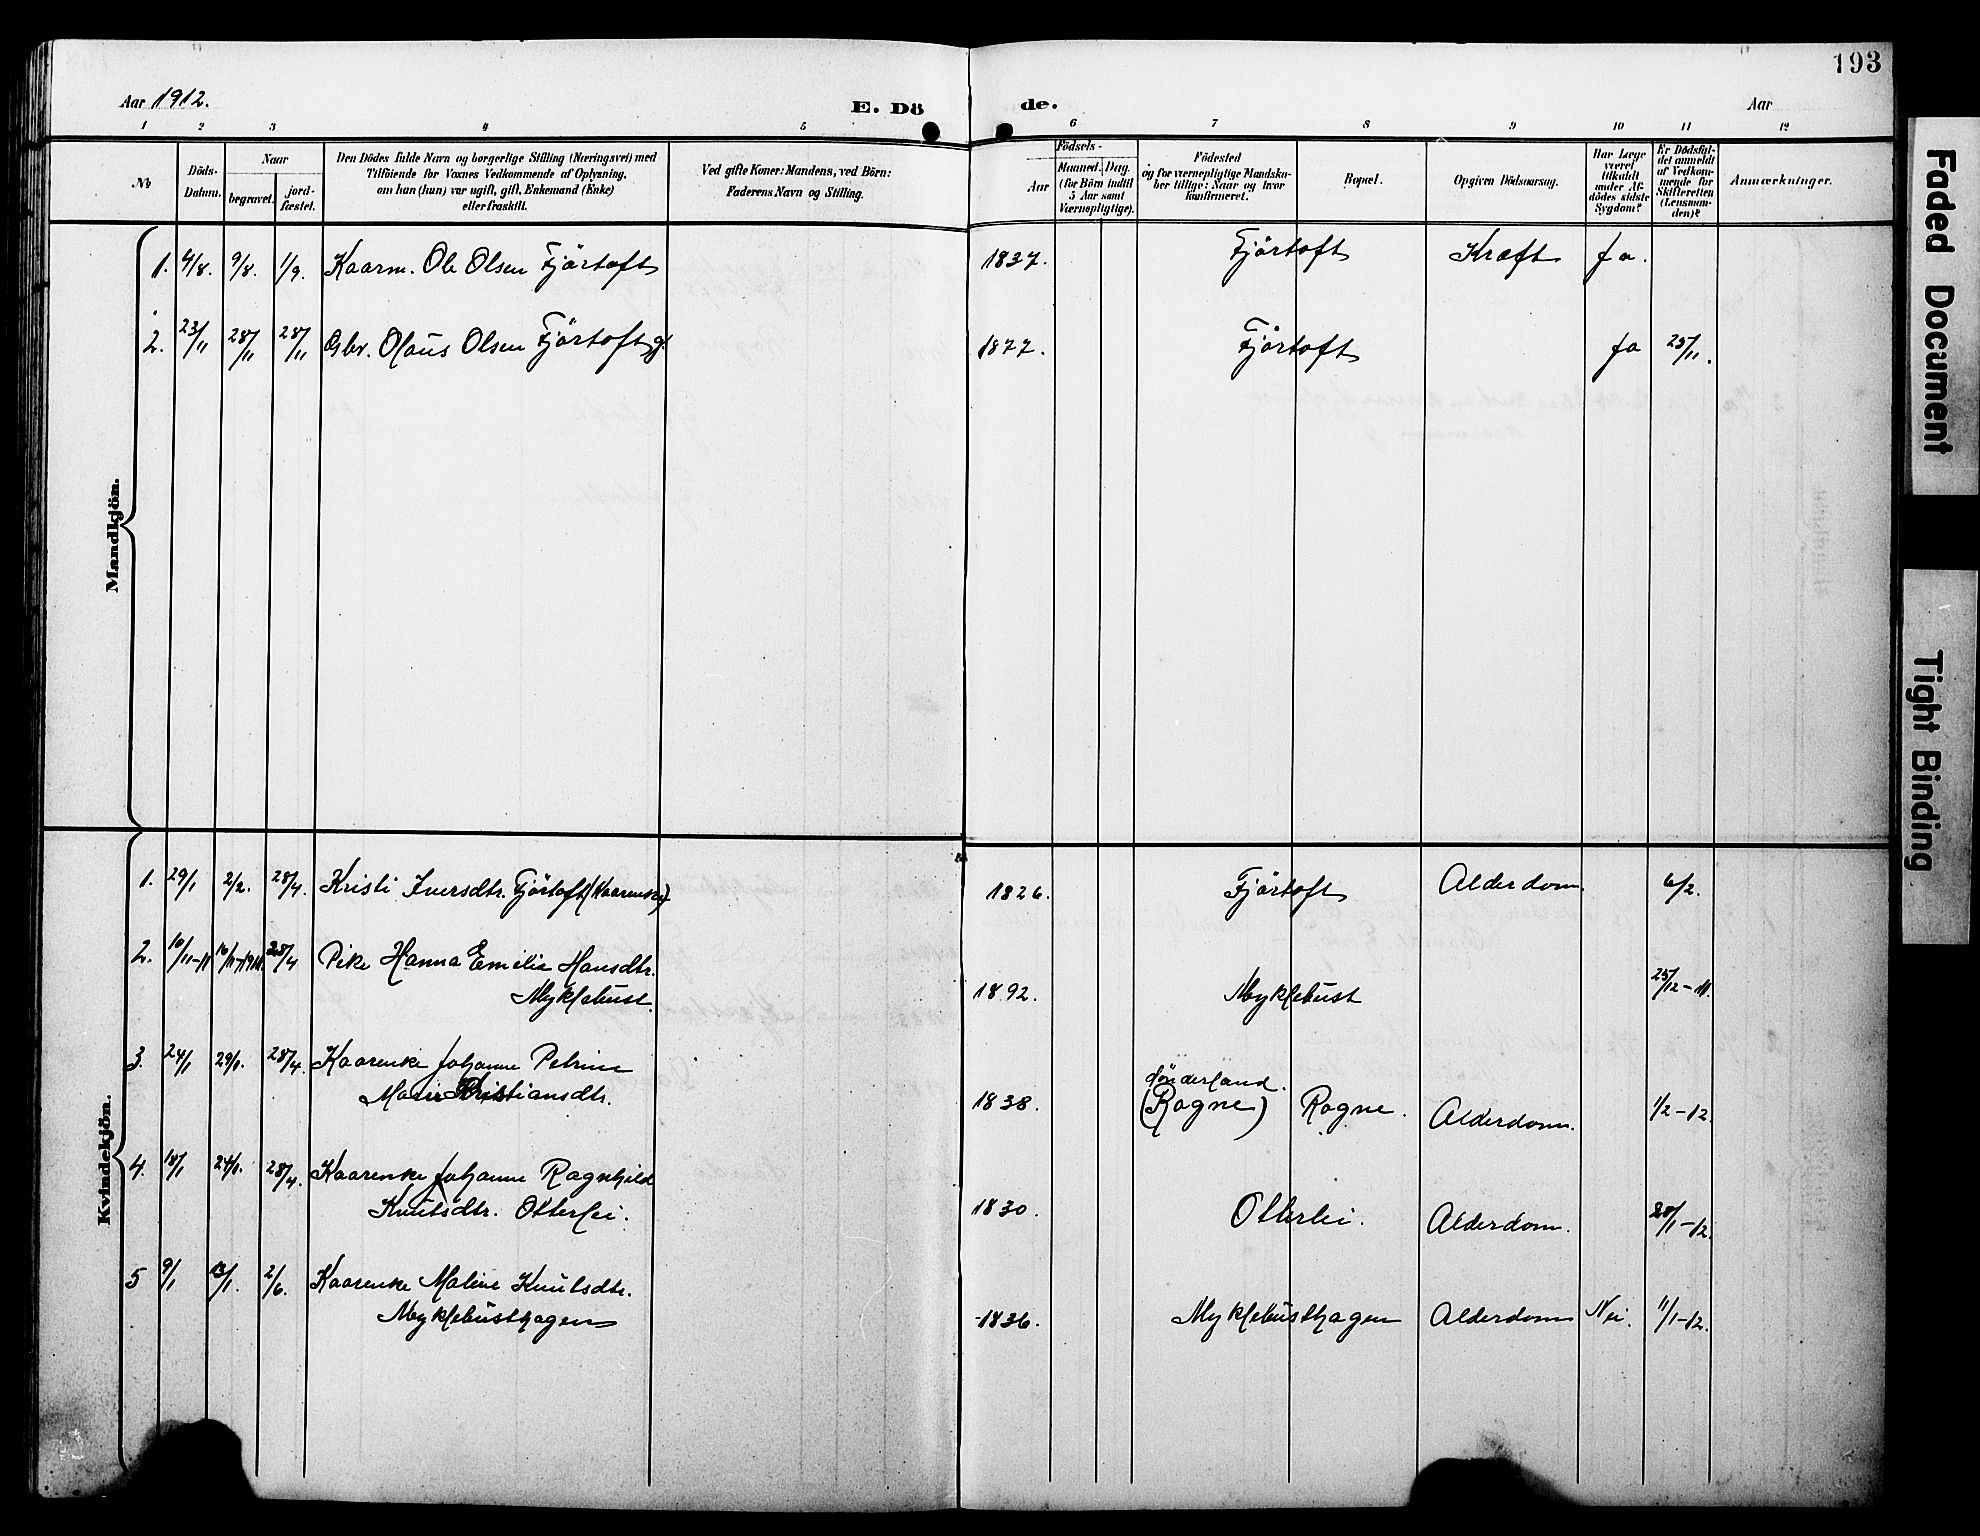 193
Aar 1912. E. Dö de. Aar
1 2 3 4 5 6 7 8 9 10 11 12
No
Döds-
Datum.
Naar
begravet. jord-
fæstet.
Den Dödes fulde Navn og borgerlige Stilling (Næringsvei) med
Tilföiende for Voxnes Vedkommende af Oplysning,
om han (hun) var ugift, gift, Enkemand (Enke)
eller fraskilt.
Ved gifte Koner: Mandens, ved Börn:
Faderens Navn og Stilling.
Födsels-
Aar Maaned. Dag.
(for Börn indtil
5 Aar samt
Værnepligtige).
Födested
og for værnepligtige Mandska-
ber tillige: Naar og hvor
konfirmeret.
Bopæl.
Opgiven Dödsaarsag.
Har Læge
været
tilkaldt
under Af-
dödes sidste
Sygdom?
Er Dödsfal-
det anmeldt
af Vedkom-
mende for
Skifteretten
(Lensman-
den)?
Anmærkninger.
Mandkjön.
1. 4/8. 9/8. 1/9. Kaarm. Ole Olsen Fjörtoft 1837. Fjörtoft Kræft Ja.
2. 23/11 28/11 28/11 Gbr. Olaus Olsen Fjörtoft g. 1877. Fjörtoft Ja 25/11.
Kvindekjön.
1. 29/1 2/2. 28/4. Kristi Iversdtr. Fjörtoft (Kaarenke) 1826. Fjörtoft Alderdom. 6/2.
2. 10/11-11 16/11-1911. 28/4 Pike Hanna Emelie Hansdtr.
Myklebust. 1892. Myklebust 25/12-11.
3. 24/1 29/1. 28/4. Kaarenke Johanne Petrine
Marie Kristiansdtr. 1838. Sönderland.
(Rogne) Rogne. Alderdom. 1/2-12
4. 18/1 24/1. 28/4. Kaarenke Johanne Ragnhild
Knutsdtr. Otterlei. 1830. Otterlei. Alderdom. 28/1-12.
5 9/1 13/1. 2/6. Kaarenke Maline Knutsdtr.
Myklebusthagen 1836. Myklebusthagen Alderdom Nei. 11/1-12.
Faded Document
Tight Binding